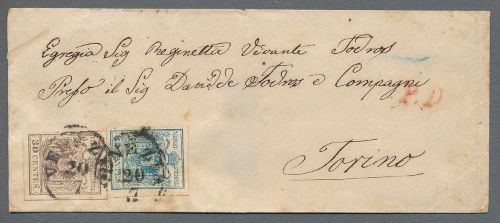 Egregia Sig Reginetta Vivante Todros
Presso il Sig Davidde Todros e Compagni
P.D
Torino
30 CENTES.
20